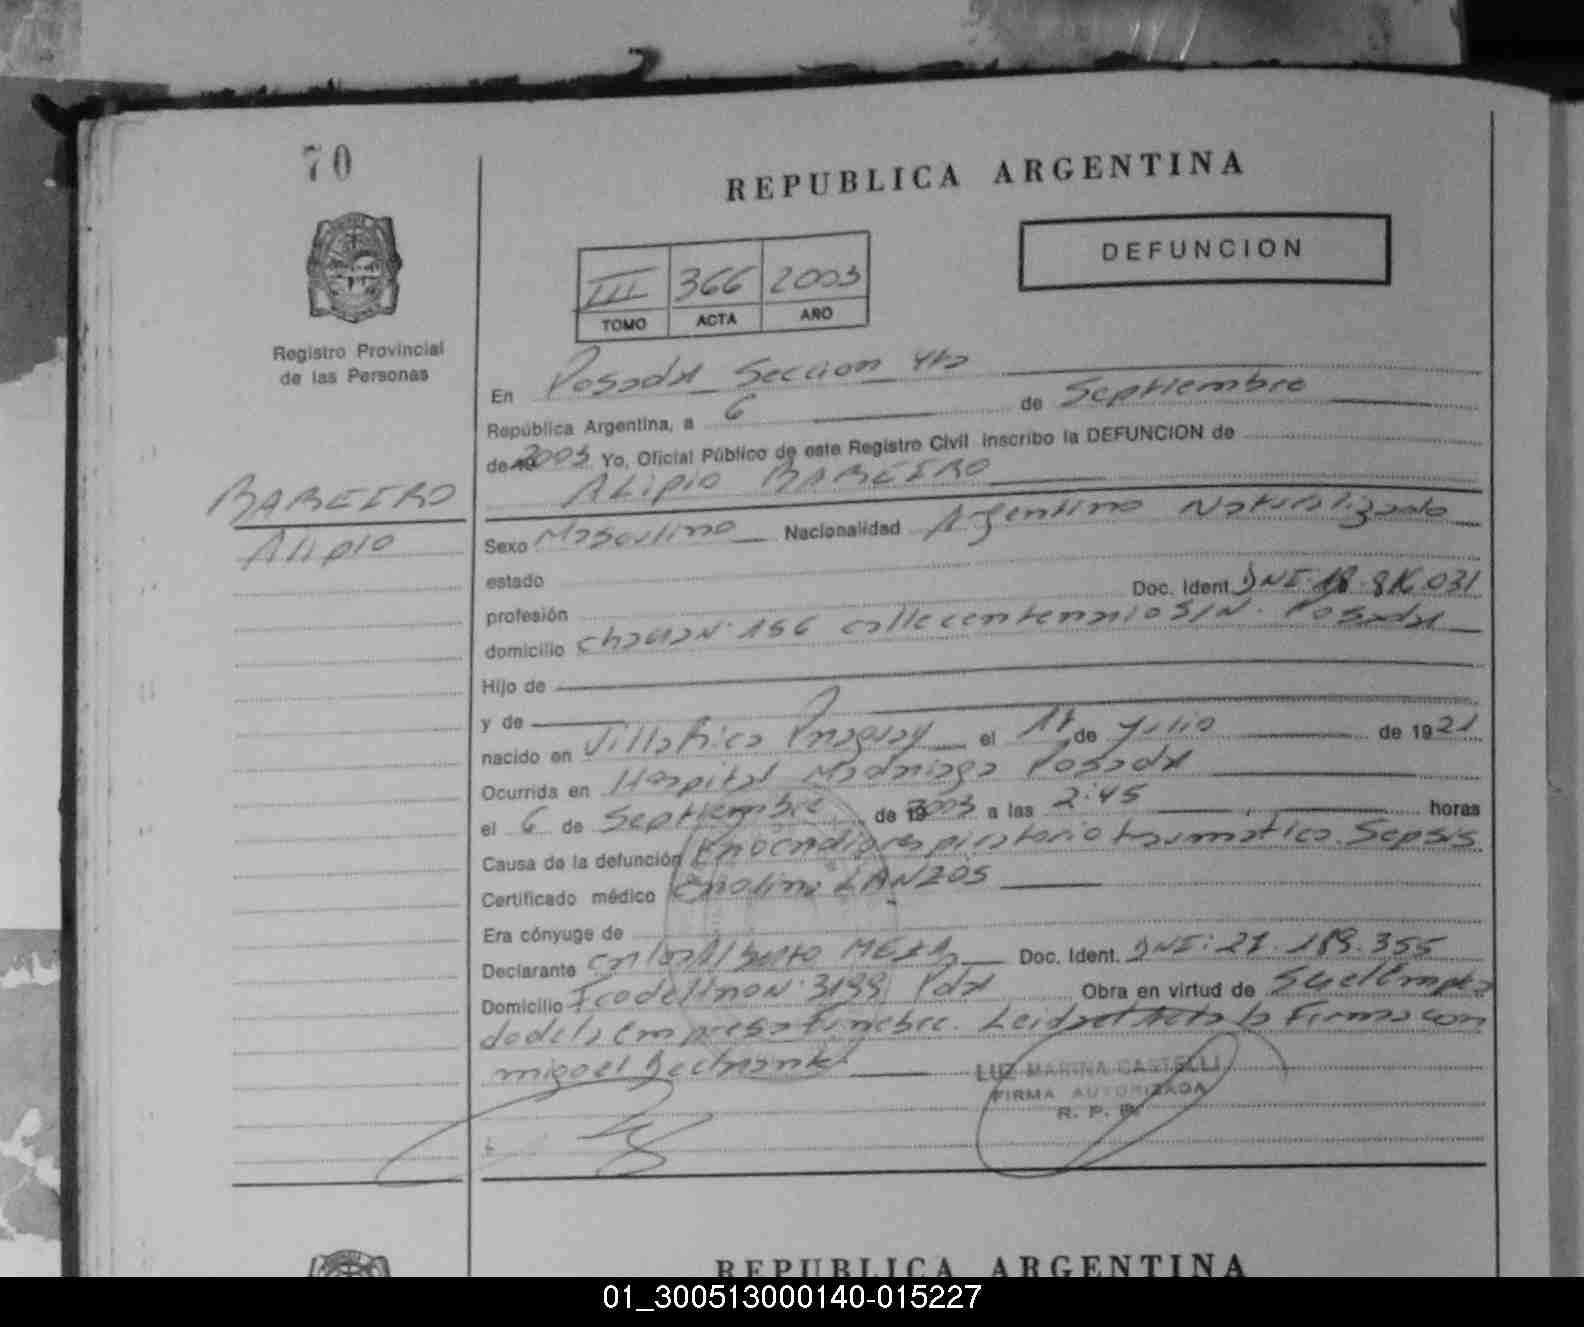 70
REPUBLICA ARGENTINA
DEFUNCION
III 366 2003
TOMO ACTA AÑO
Registro Provincial
de las Personas
En Posadas Seccion 4ta
República Argentina, a 6 de Septiembre
de 2003 Yo, Oficial Público de este Registro Civil inscribo la DEFUNCION de
Alipio BAREIRO
BAREIRO
Alipio
Sexo Masculino Nacionalidad Argentino Naturalizado
estado
profesión Doc. Ident. DNI: 18.816.031
domicilio chacra N: 156 calle centenario S/N. Posadas
Hijo de
y de
nacido en Villa Rica Paraguay el 17 de Julio de 1921
Ocurrida en Hospital Madariaga Posadas
el 6 de Septiembre de 2003 a las 2:45 horas
Causa de la defunción Paro cardiorespiratorio traumatico. Sepsis
Certificado médico LANZOS
Era cónyuge de
Declarante Carlos Alberto MEZA Doc. Ident. DNI: 27.189.355
Domicilio Fco de Haro N: 3199 Pdas Obra en virtud de Ser el Emplea
do de la Empresa Funebre. Leida el Acta la Firma con
migo el Declarante
LUZ MARINA CASTELLI
FIRMA AUTORIZADA
R. P. P.
REPUBLICA ARGENTINA
01_300513000140-015227